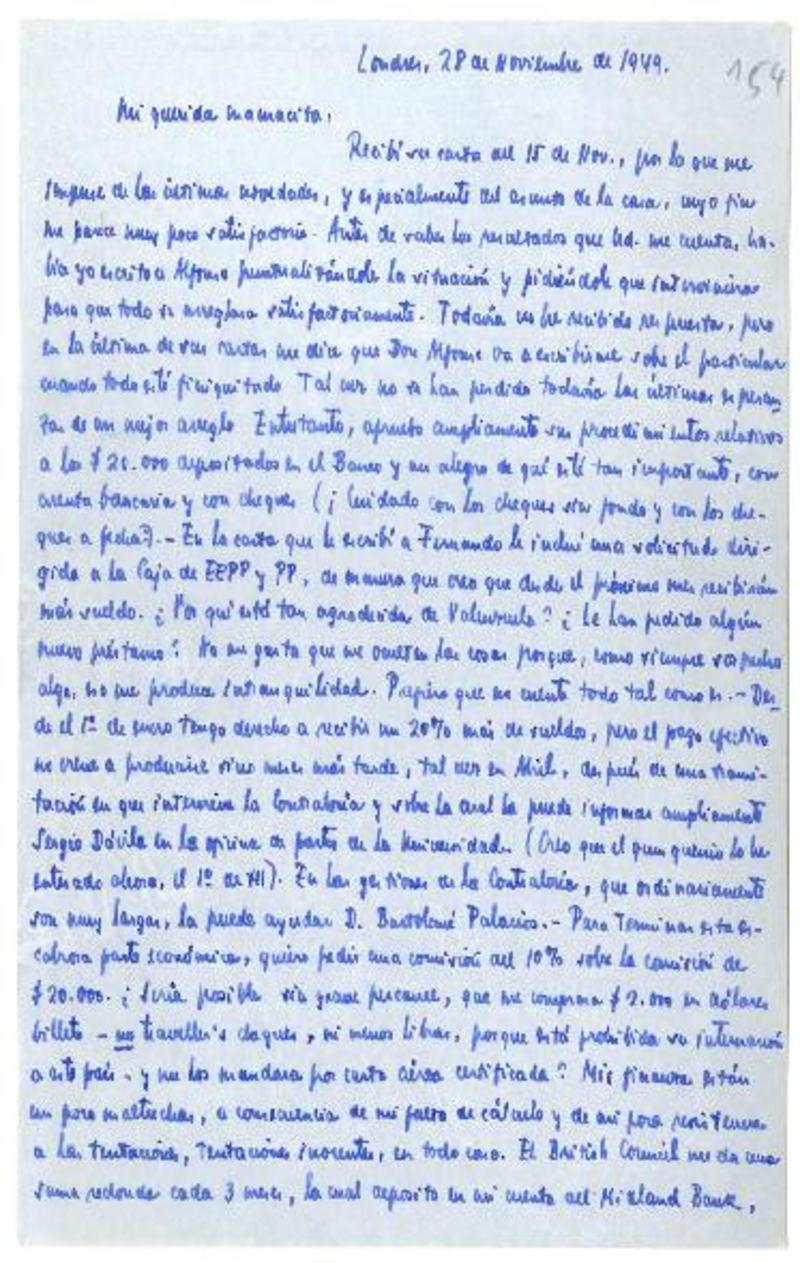 Londres, 28 de Noviembre de 1949.
154
Mi querida mamacita:
Recibí su carta del 15 de Nov., por lo que me
impuse de las últimas novedades, y especialmente del asunto de la casa, cuyo fin
me parece muy poco satisfactorio. Antes de saber los resultados que Ud. me cuenta, ha-
bía yo escrito a Alfonso puntualizándole la situación y pidiéndole que interviniera
para que todo se arreglara satisfactoriamente. Todavía no he recibido respuesta, pero
en la última de sus cartas me dice que Don Alfonso va a escribirme sobre el particular
cuando todo esté finiquitado. Tal vez no se han perdido todavía las últimas esperan-
zas de un mejor arreglo. Entretanto, apruebo ampliamente sus procedimientos relativos
a los $ 20.000 depositados en el Banco y me alegro de que esté tan importante, con
cuenta bancaria y con cheques (¡Cuidado con los cheques sin fondo y con los che-
ques a fecha!). - En la carta que le escribí a Fernando le incluí una solicitud diri-
gida a la Caja de EEPP y PP, de manera que creo que desde el próximo mes recibirán
más sueldo. ¿Por qué está tan agradecida de Valenzuela? ¿Le han pedido algún
nuevo préstamo? No me gusta que me oculten las cosas porque, como siempre sospecho
algo, eso me produce intranquilidad. Prefiero que me cuente todo tal como es. - Des-
de el 1º de enero tengo derecho a recibir un 20% más de sueldo, pero el pago efectivo
no viene a producirse sino meses más tarde, tal vez en Abril, después de una trami-
tación en que interviene la Contraloría y sobre la cual la puede informar ampliamente
Sergio Dávila en la oficina de partes de la Universidad. (Creo que el quinquenio lo he
enterado ahora, el 1º de XII). En las gestiones de la Contraloría, que ordinariamente
son muy largas, la puede ayudar D. Bartolomé Palacios. - Para terminar esta es-
cabrosa parte económica, quiero pedir una comisión del 10% sobre la comisión de
$ 20.000. ¿Sería posible, sin grave percance, que me comprara $ 2.000 en dólares
billete - no traveller's cheques, ni menos libras, porque está prohibida su internación
a este país - y me los mandara por carta aérea certificada? Mis finanzas están
un poco maltrechas, a consecuencia de mi falta de cálculo y de mi poca resistencia
a las tentaciones, tentaciones inocentes, en todo caso. El British Council me da una
suma redonda cada 3 meses, la cual deposito en mi cuenta del Midland Bank,